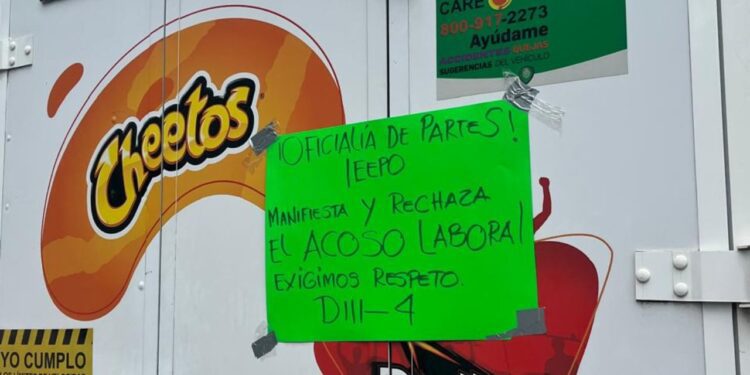 CARE
800-917-2273
Ayúdame
ACCIDENTES QUEJAS
SUGERENCIAS DEL VEHÍCULO
Cheetos
¡OFICIALÍA DE PARTES!
IEEPO
MANIFIESTA Y RECHAZA
EL ACOSO LABORAL
EXIGIMOS RESPETO.
DIII-4
YO CUMPLO